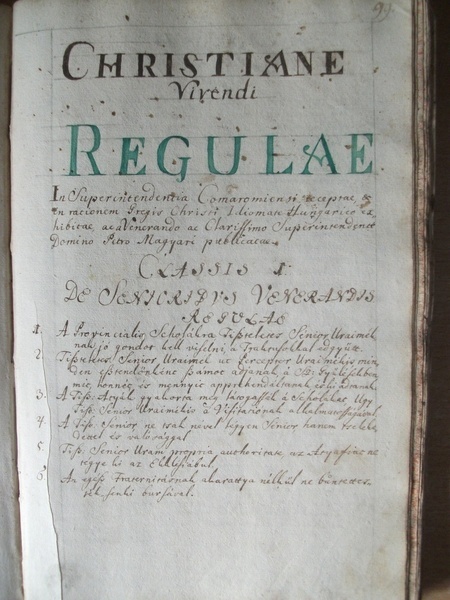 CHRISTIANE
Vivendi
REGULAE
In Superintendentia Comaromiensi receptae, &
in rationem Gregis Christi Idiomate Hungarico ex,
hibitae, ac a Venerando ac Clarissimo Superintendente
Domino Petro Magyari publicatae
CLASSIS I
DE SENIORIBVS VENERANDIS
REGULAE
1. A Provincialis Scholákra Tiszteletes Senior Uraimék
nak jó gondot kell viselni
2. Tiszteletes Senior Uraimék
den esztendőnként számot adjanak, a
mit, honnét és mennyit
3. A Tiszt. Atyák gyakorta meg látogassák a Scholákat, Ugy
Tiszt. Senior Uraimékis a Visitatiónak
4. A Tiszt. Senior ne tsak nevel legyen Senior hanem
és valósággal
5. Tiszt. Senior Uram propria authoritate, az Atyafiat ne
tegye ki az Ekklésiábul,
6. Az egész Fraternitásnak akarattya nélkül ne büntettes,
sék senki bursával.